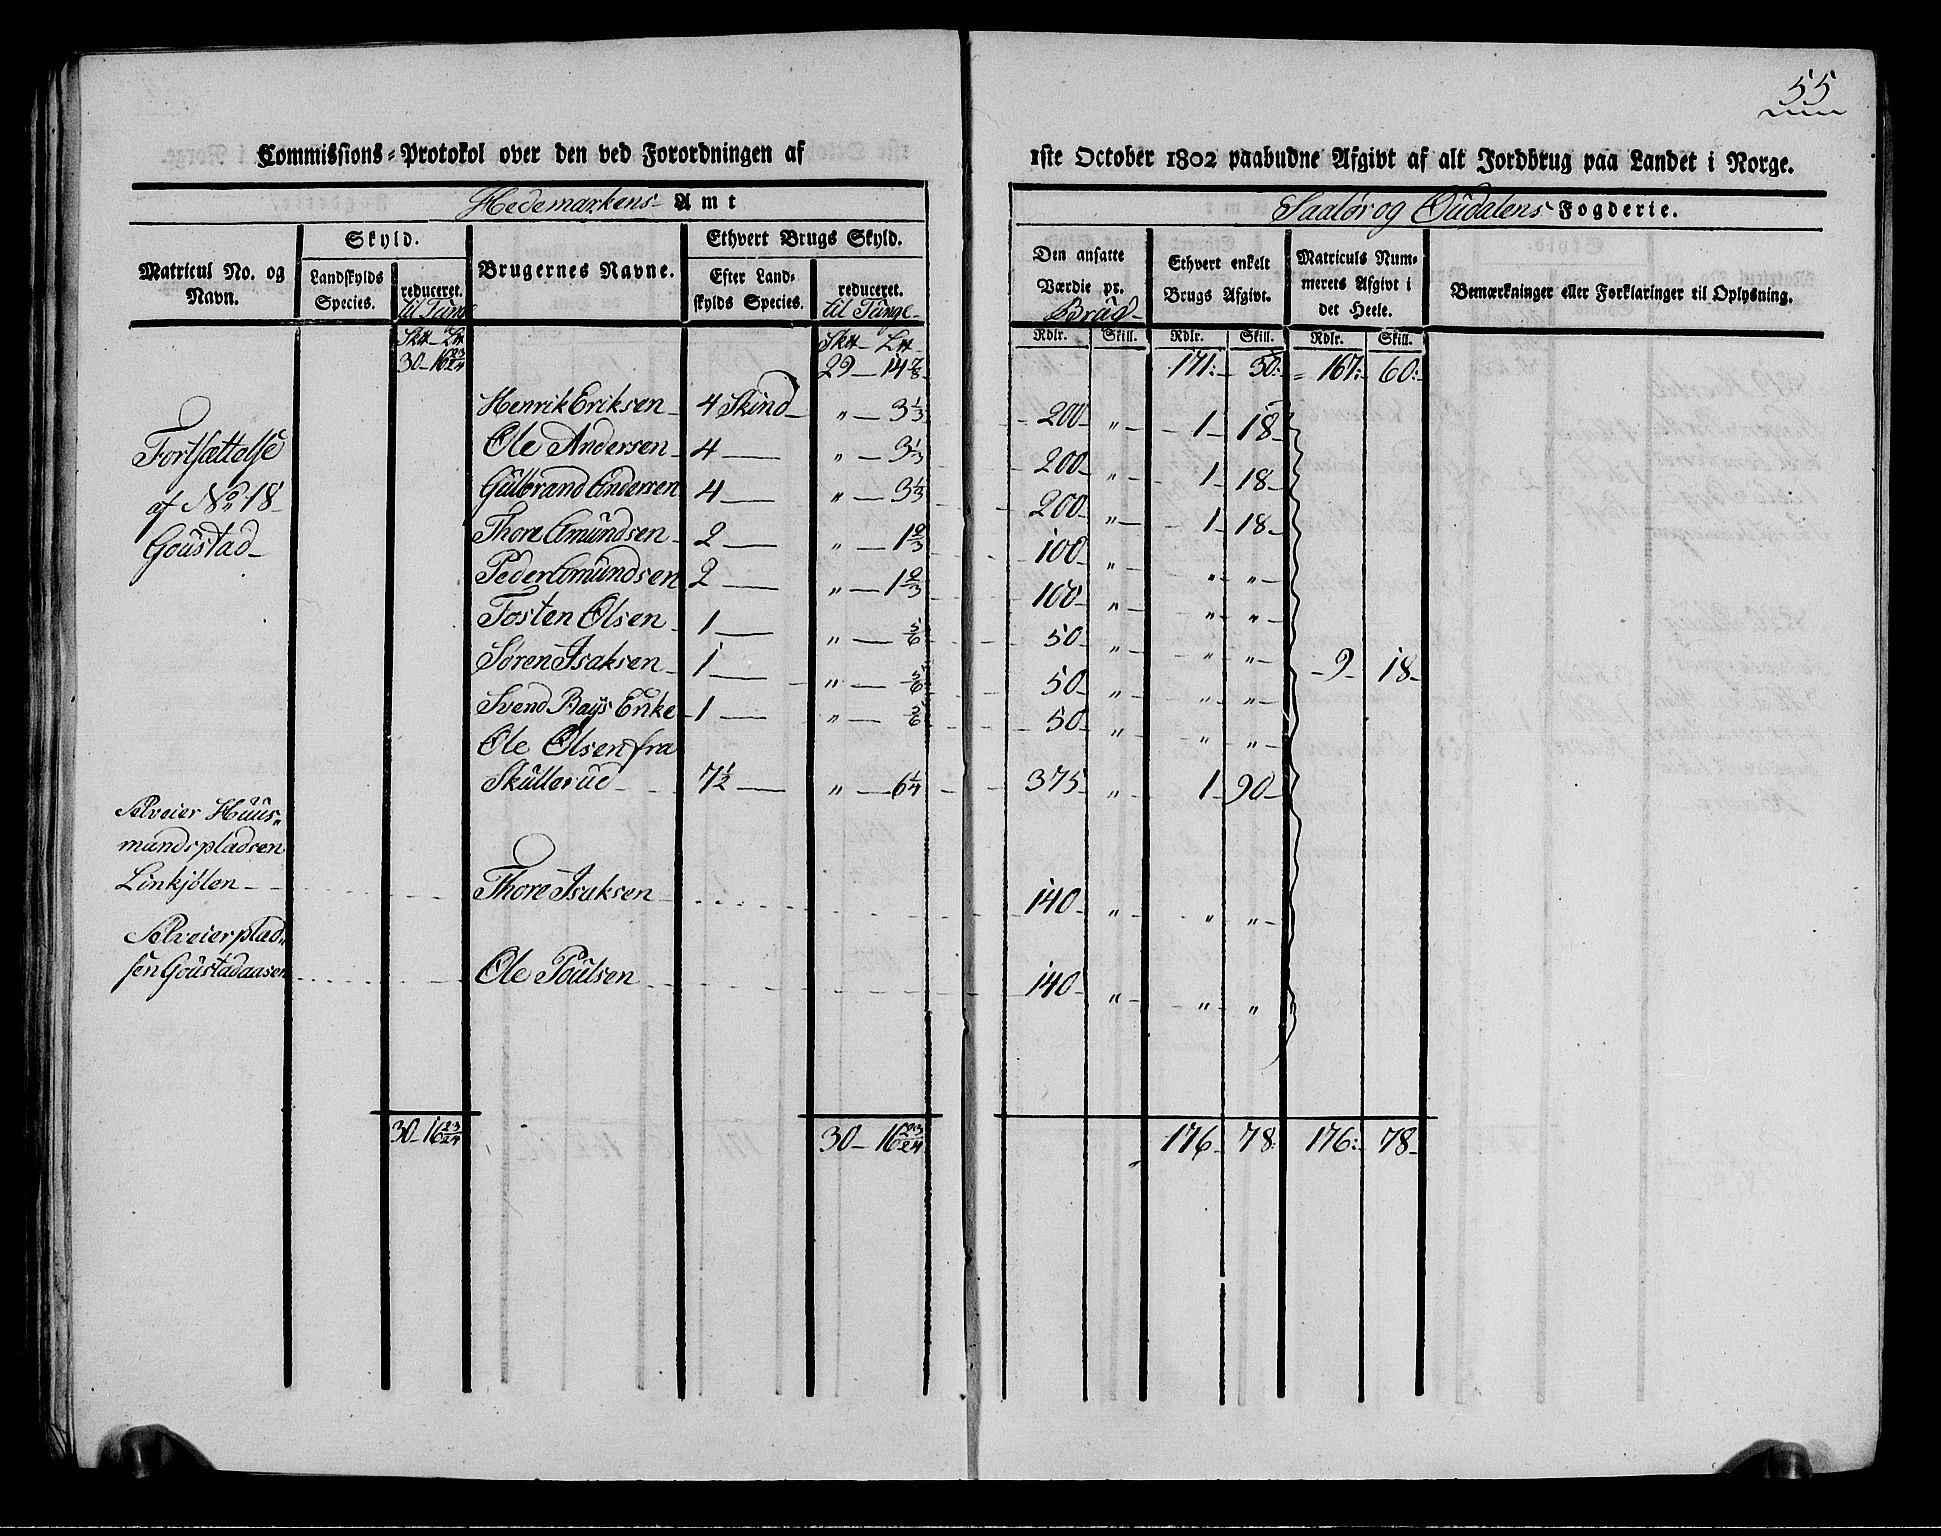 55
Commissions-Protokol over den ved Forordningen af 1ste October 1802 paabudne Afgivt af alt Jordbrug paa Landet i Norge.
Hedemarkens Amt
Saalør og Oudalens Fogderie.
Matricul No. og Navn.
Skyld.
Landskylds Species.
reduceret.
Brugernes Navne.
Ethvert Brugs Skyld.
Efter Landskylds Species.
reduceret. til Tunge
Den ansatte Værdie pr. Brug
Ethvert enkelt Brugs Afgivt.
Matriculs Nummerets Afgivt i det Heele.
Bemærkninger eller Forklaringer til Oplysning.
Rdlr. Skill. Rdlr. Skill. Rdlr. Skill.
30 - 16 23/24 29 - 14 7/8 171: 50: 167: 60:
Fortsættelse
af No 18
Goustad
Henrik Eriksen 4 Skind " 3 1/3 200 " 1 18
Ole Andersen 4 " 3 1/3 200 " 1 18
Gulbrand Andersen 4 " 3 1/3 200 " 1 18
Thore Amundsen 2 " 1 2/3 100 " " "
Peder Amundsen 2 " 1 2/3 100 " " "
Tosten Olsen 1 " 5/6 50 " " "
Søren Isaksen 1 " 5/6 50 " " " 9 18
Svend Bays Enke 1 " 5/6 50 " " "
Ole Olsen fra
Skullerud 7 1/2 " 6 1/4 375 " 1 90
Selveier Huus-
mandspladsen
Linkjølen Thore Isaksen 140 " " "
Selveierplad-
sen Goustadaasen Ole Poulsen 140 " " "
30 - 16 23/24 30 - 16 23/24 176 78 176: 78